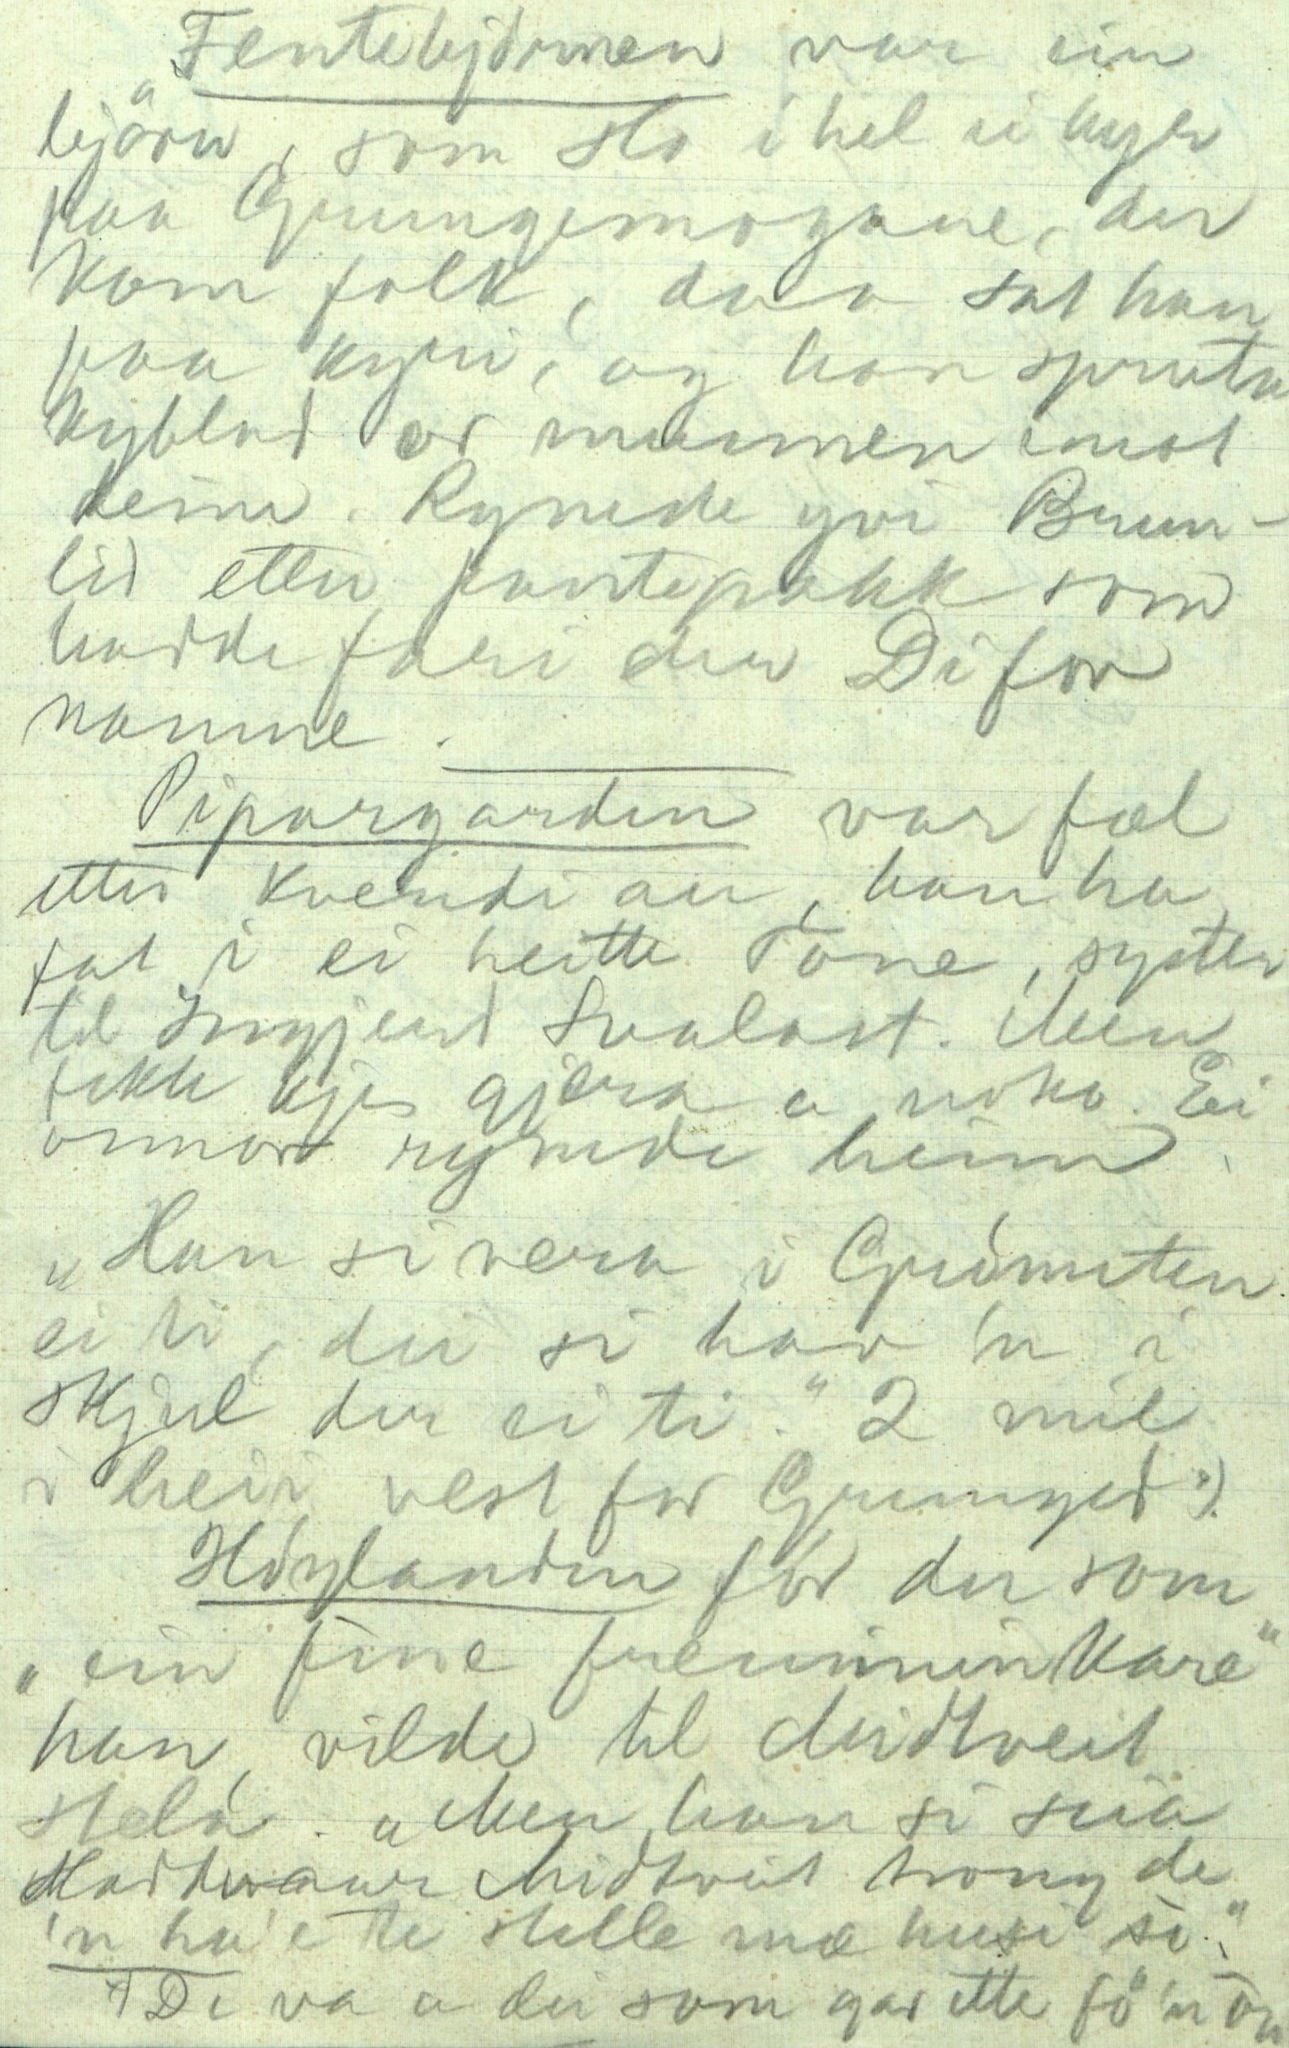 „Fentebjörnen var ein
björn, som slo ihel ei kyr
paa Grungemogane, der
kom folk, daa sat han
paa kyri, og han spruta
kyblod or munnen imot
deim. Rynede yvi Bruun-
lid etter fantepakk som
hadde fari der Di for
namne.
Pipargarden var fæl
etter kvendi au, han ha
fat i ei heitte Tone, syster
til Ingjerd Svalast. Men
fekk kje gjera a noko. Ei
onnor rynede heim.
„Han si vera i Grömuten
ei ti, dei si hav 'n i
skjul der ei ti." 2 mil
i heii vest for Grunged).
Höylanden for der som
„ein fine fremmin kare"
han vilde til Midtveit
stela. „Men han si suá
Hadd Midtveit trong de
'n ha' e te stelle mæ husi si."
De va a dei som gav ette fö 'n